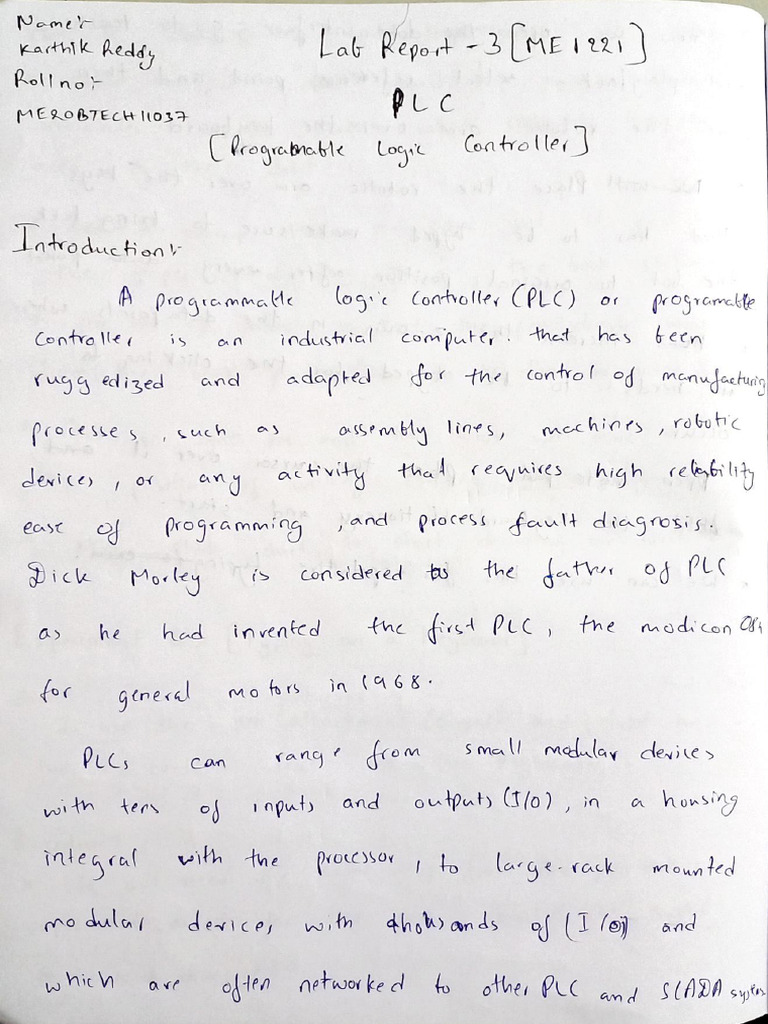 Name:-
Karthik Reddy
Roll no:-
ME20BTECH11037
Lab Report - 3 [ME1221]
PLC
[Programable Logic Controller]
Introduction:-
A programmable logic controller (PLC) or programable
controller is an industrial computer. that has been
ruggedized and adapted for the control of manufacturing
processes, such as assembly lines, machines, robotic
devices, or any activity that requires high reliability
ease of programming, and process fault diagnosis.
Dick Morley is considered as the father of PLC
as he had invented the first PLC, the modicon 084
for general motors in 1968.
PLCs can range from small modular devices
with tens of inputs and outputs (I/O), in a housing
integral with the processor, to large-rack mounted
modular devices with thousands of (I/O) and
which are often networked to other PLC and SCADA system